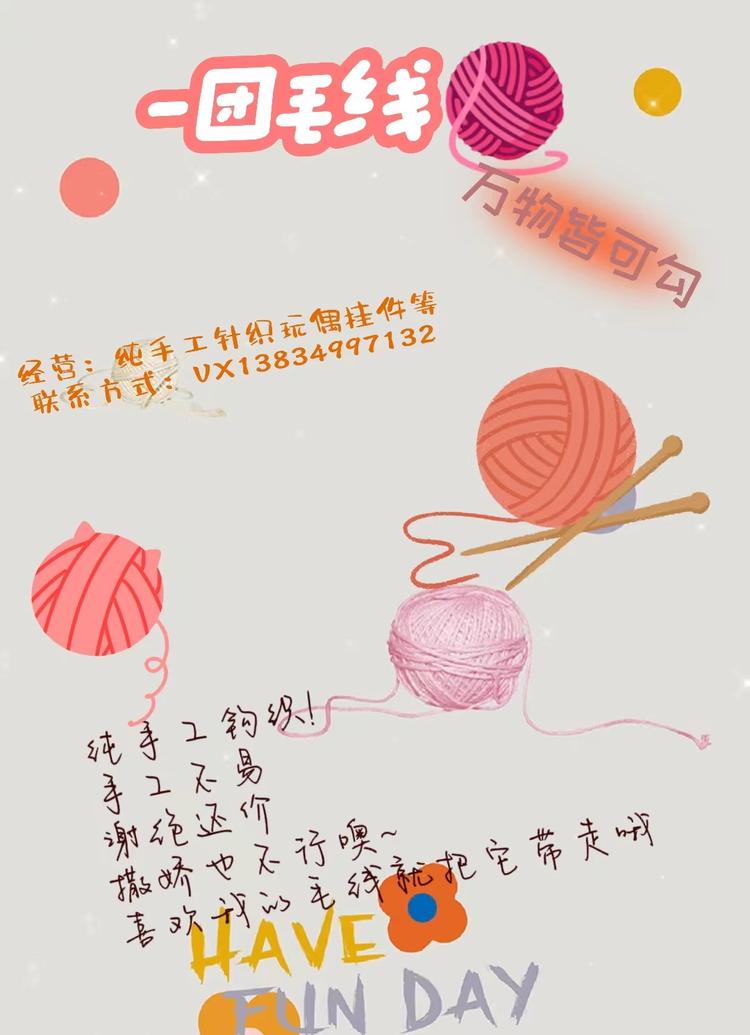 一团毛线
万物皆可勾
经营：纯手工针织玩偶挂件等
联系方式：VX13834997132
纯手工钩织！
手工不易
谢绝还价
撒娇也不行噢~
喜欢我的毛线就把它带走哦
HAVE
FUN DAY